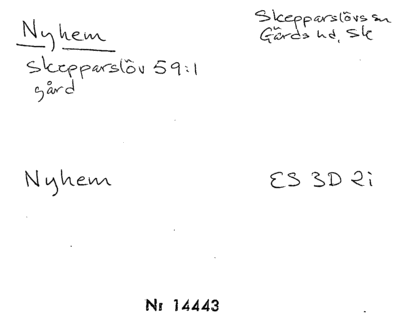 Nyhem
Skepparslövs sn
Gärds hd, Sk
Skepparslöv 59:1
gård
Nyhem
ES 3D 2i
Nr 14443